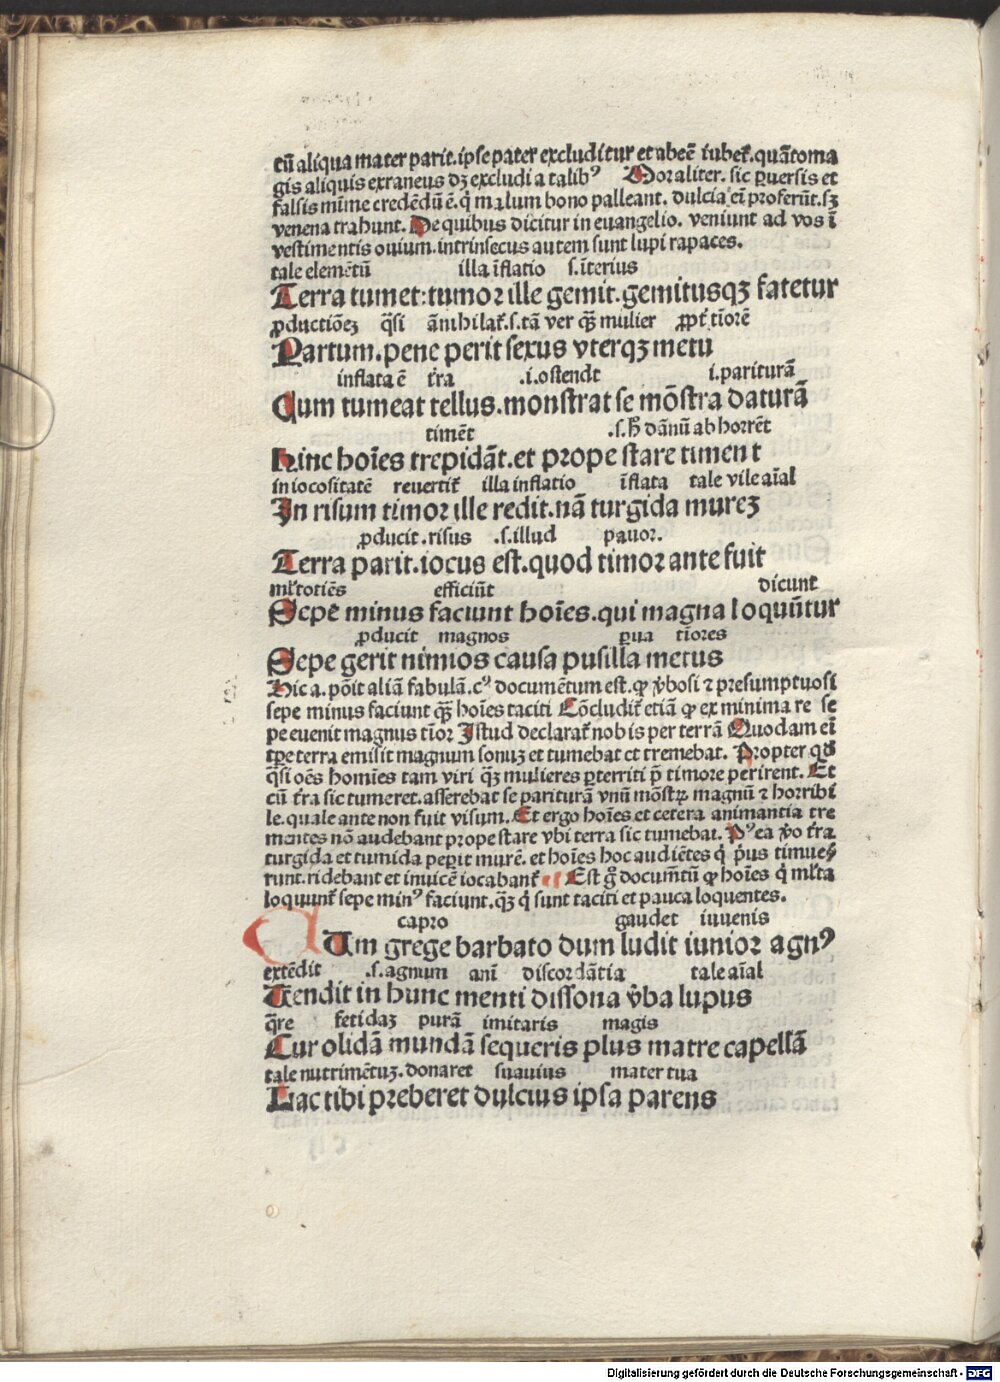 tū aliqua mater parit. ipse pater excluditur et abeē iubet̄. quātoma
gis aliquis exraneus dꝫ excludi a talibꝰ Moraliter. sic ꝑuersis et
falsis mīme credēdū ē. q̇ malum bono palleant. dulcia eī proferūt. sꝫ
venena trahunt. De quibus dicitur in euangelio. veniunt ad vos ī
vestimentis ouium. intrinsecus autem sunt lupi rapaces.
tale elemētū illa īflatio .s. īterius
Terra tumet: tumor ille gemit. gemitusqꝫ fatetur
ꝓductiōeꝫ q̄si ānihilat̄. s. tā ver qꝫ̄ mulier ꝓpt̄ tīorē
Partum. pene perit sexus vterqꝫ metu
inflata ē t̄ra .i. ostendt i. pariturā
Cum tumeat tellus. monstrat se mōstra daturā
timēt .s. h̄ dānū abhorrēt
Hinc hoīes trepidāt. et prope stare timent
in iocositatē reuertit̄ illa inflatio īflata tale vile aīal
In risum timor ille redit. nā turgida mureꝫ
ꝓducit. risus .s. illud pauor.
Terra parit. iocus est. quod timor ante fuit
ml̄totiēs efficiūt dicunt
Sepe minus faciunt hoīes. qui magna loquūtur
ꝓducit magnos ꝑua tīores
Sepe gerit nimios causa pusilla metus
Hic a. pōit aliā fabulā. cꝰ documētum est. ꝙ v̄bosi ⁊ presumptuosi
sepe minus faciunt qꝫ̄ hoīes taciti Cōcludit̄ etiā ꝙ ex minima re se
pe euenit magnus tīor Istud declarat̄ nobis per terrā Quodam eī
tꝑe terra emisit magnum sonuꝫ et tumebat et tremebat. Propter qd̄
q̄si oēs homīes tam viri qꝫ̄ mulieres ꝑterriti p̄ timore perirent. Et
cū t̄ra sic tumeret. asserebat se pariturā vnū mōstꝝ magnū ⁊ horribi
le. quale ante non fuit visum. Et ergo hoīes et cetera animantia tre
mentes nō audebant prope stare vbi terra sic tumebat. Pꝰ ea v̄o t̄ra
turgida et tumida peperit murē. et hoīes hoc audiētes q̇ p̄us timue
runt. ridebant et inuicē iocabant̄ Est g̊ documētū ꝙ hoīes q̇ ml̄ta
loquunt̄ sepe minꝰ faciunt. qꝫ̄ q̇ sunt taciti et pauca loquentes.
capro gaudet iuuenis
CUm grege barbato dum ludit iunior agnꝰ
extēdit .s. agnum anī discordātia tale aīal
Tendit in hunc menti dissona v̄ba lupus
q̄re fetidaꝫ purā imitaris magis
Cur olidā mundā sequeris plus matre capellā
tale nutrimētuꝫ. donaret suauius mater tua
Lac tibi preberet dulcius ipsa parens
Digitalisierung gefördert durch die Deutsche Forschungsgemeinschaft - DFG